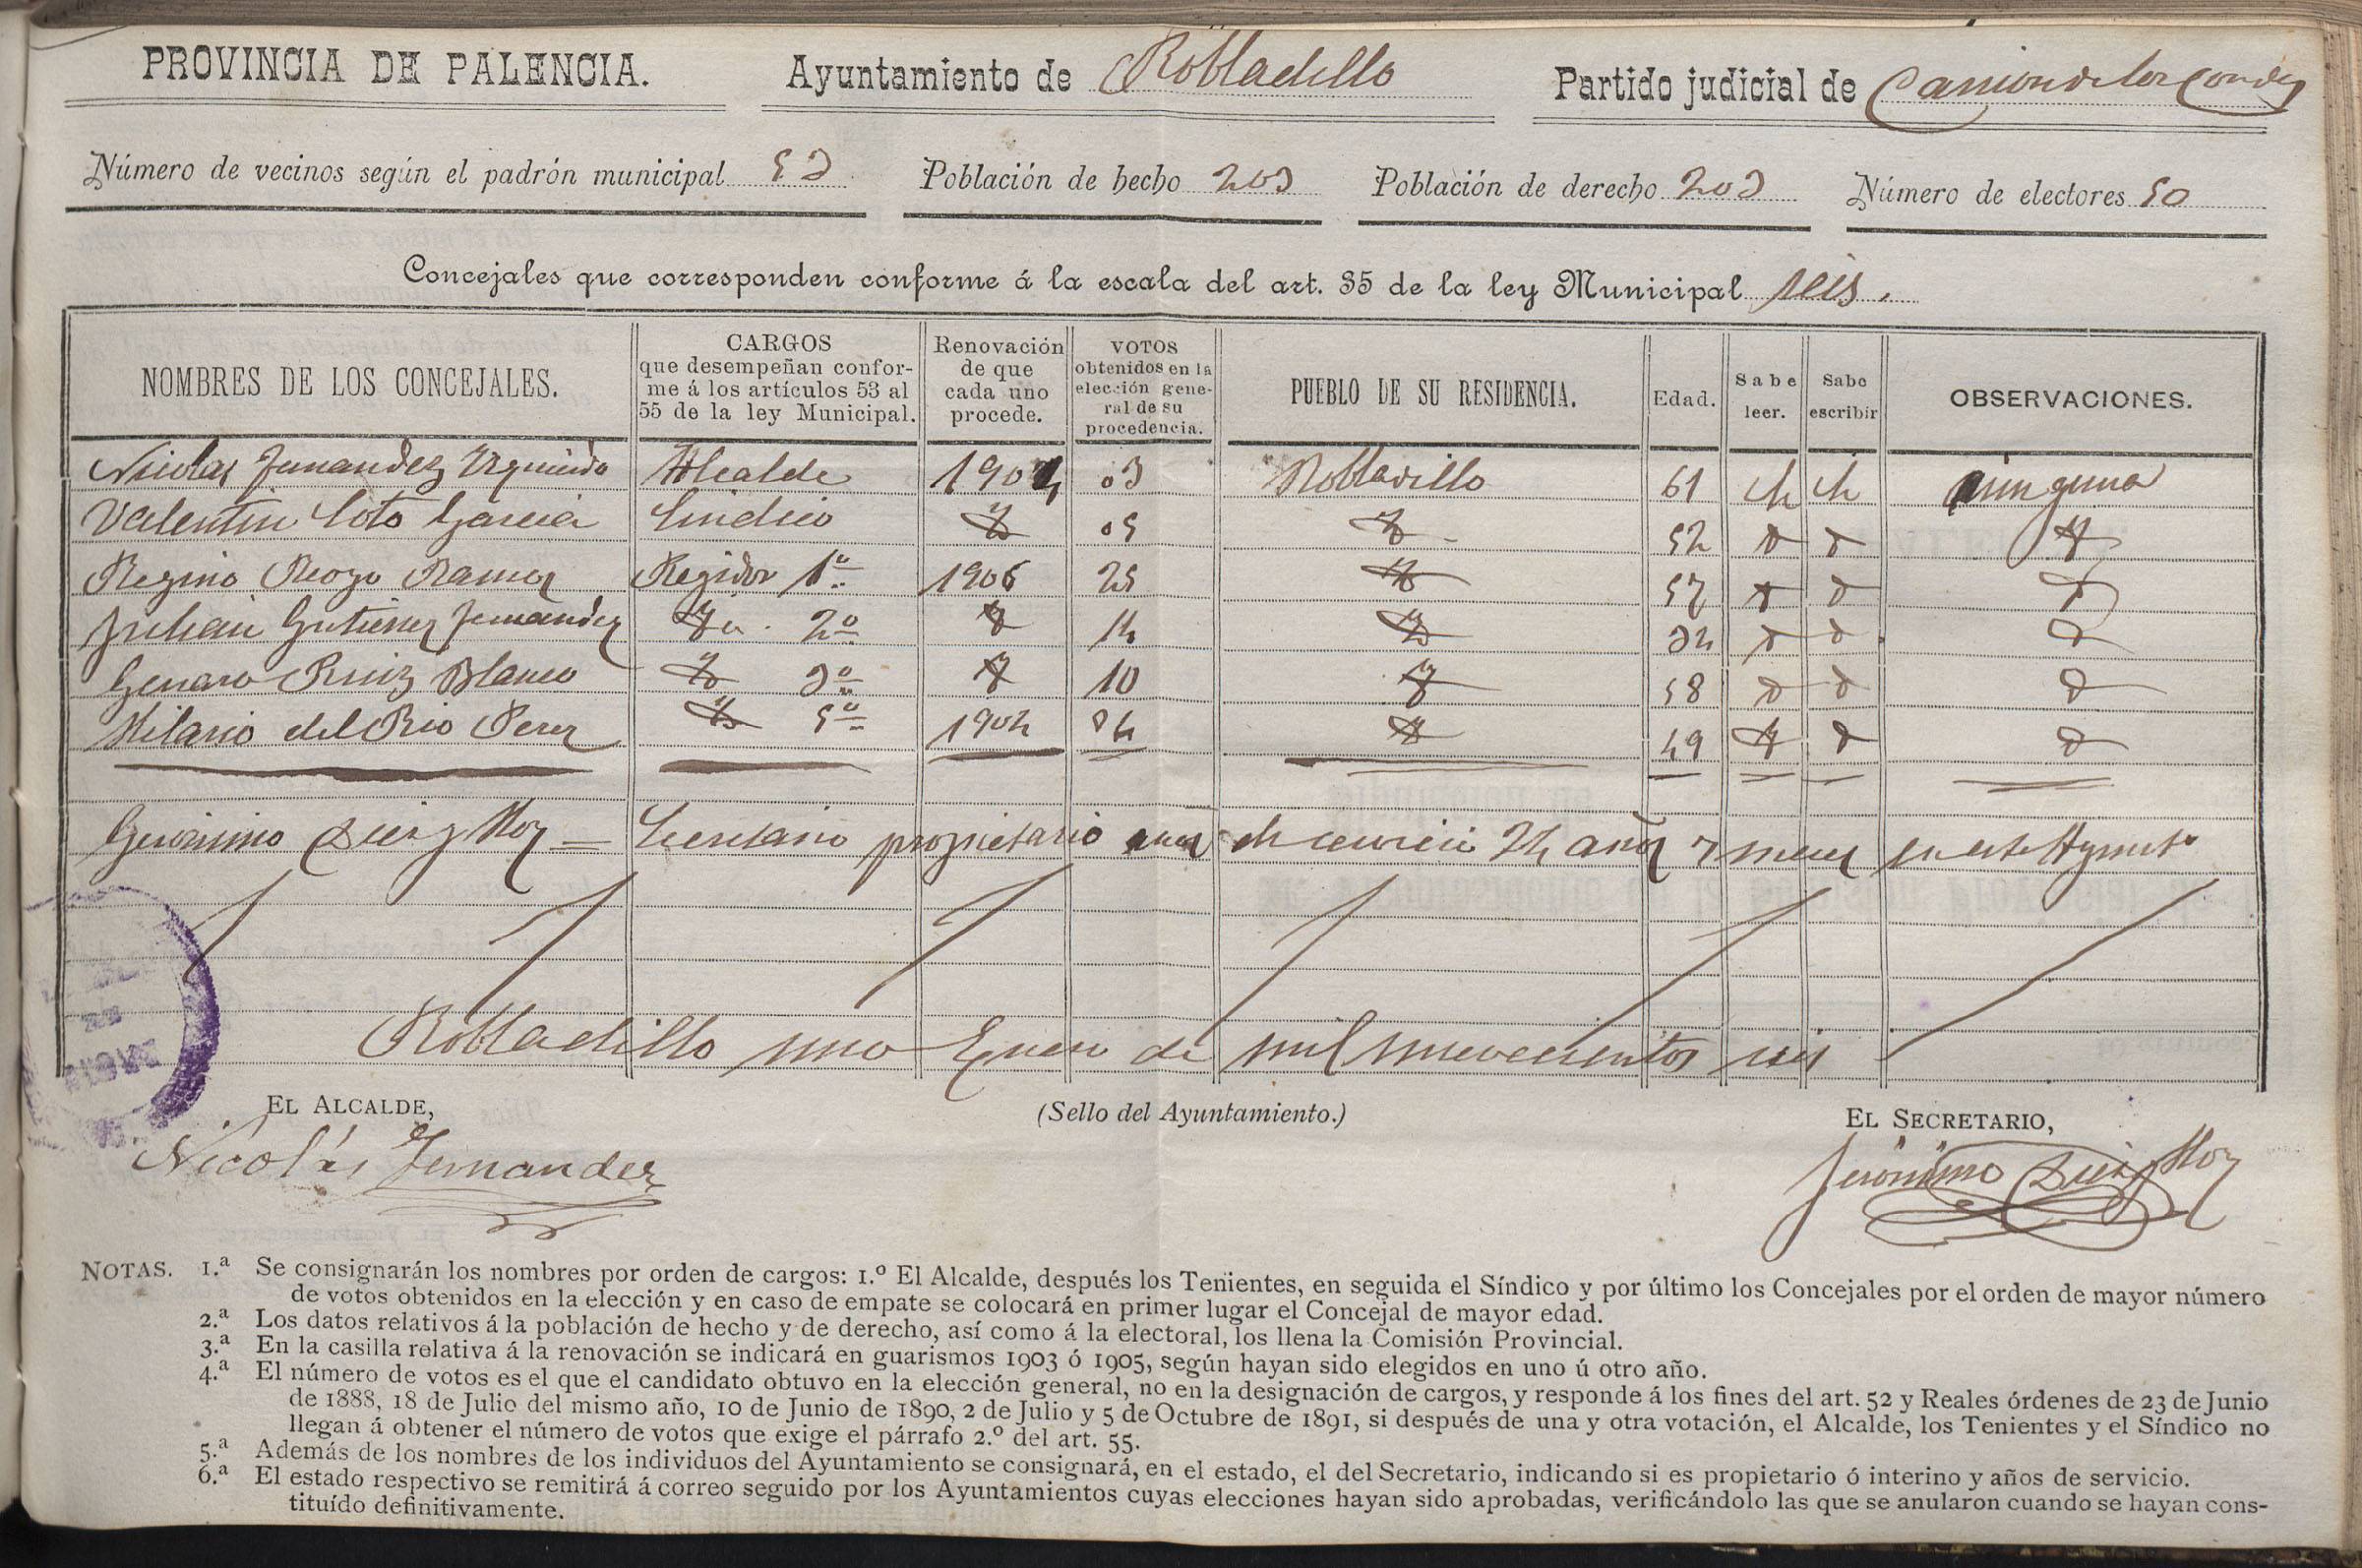 PROVINCIA DE PALENCIA. Ayuntamiento de Robladillo Partido judicial de Carrion de los Condes
Número de vecinos según el padrón municipal 53 Población de hecho 203 Población de derecho 203 Número de electores 50
Concejales que corresponden conforme á la escala del art. 35 de la ley Municipal seis.
NOMBRES DE LOS CONCEJALES. CARGOS que desempeñan conforme á los artículos 53 al 55 de la ley Municipal. Renovación de que cada uno procede. VOTOS obtenidos en la elección general de su procedencia. PUEBLO DE SU RESIDENCIA. Edad. Sabe leer. Sabe escribir OBSERVACIONES.
Nicolas Fernandez Izquierdo Alcalde 1904 03 Robladillo 61 ninguna
Valentin Soto Garcia Sindico 05 52
Regino Royo Ramos Regidor 1º 1906 25 57
Julian Gutierrez Fernandez 2º 14 34
Genaro Ruiz Blanco 3º 10 58
Hilario del Rio Perez 5º 1904 04 49
Geronimo Diez y Hoz = Secretario propietario de servicio 24 años 7 meses en este Aynmto
Robladillo uno Enero de mil nuevecientos seis
EL ALCALDE, (Sello del Ayuntamiento.) EL SECRETARIO,
Nicolás Fernandez Jerónimo Diez y Hoz
NOTAS. 1.ª Se consignarán los nombres por orden de cargos: 1.º El Alcalde, después los Tenientes, en seguida el Síndico y por último los Concejales por el orden de mayor número
de votos obtenidos en la elección y en caso de empate se colocará en primer lugar el Concejal de mayor edad.
2.ª Los datos relativos á la población de hecho y de derecho, así como á la electoral, los llena la Comisión Provincial.
3.ª En la casilla relativa á la renovación se indicará en guarismos 1903 ó 1905, según hayan sido elegidos en uno ú otro año.
4.ª El número de votos es el que el candidato obtuvo en la elección general, no en la designación de cargos, y responde á los fines del art. 52 y Reales órdenes de 23 de Junio
de 1888, 18 de Julio del mismo año, 10 de Junio de 1890, 2 de Julio y 5 de Octubre de 1891, si después de una y otra votación, el Alcalde, los Tenientes y el Síndico no
llegan á obtener el número de votos que exige el párrafo 2.º del art. 55.
5.ª Además de los nombres de los individuos del Ayuntamiento se consignará, en el estado, el del Secretario, indicando si es propietario ó interino y años de servicio.
6.ª El estado respectivo se remitirá á correo seguido por los Ayuntamientos cuyas elecciones hayan sido aprobadas, verificándolo las que se anularon cuando se hayan cons-
tituído definitivamente.